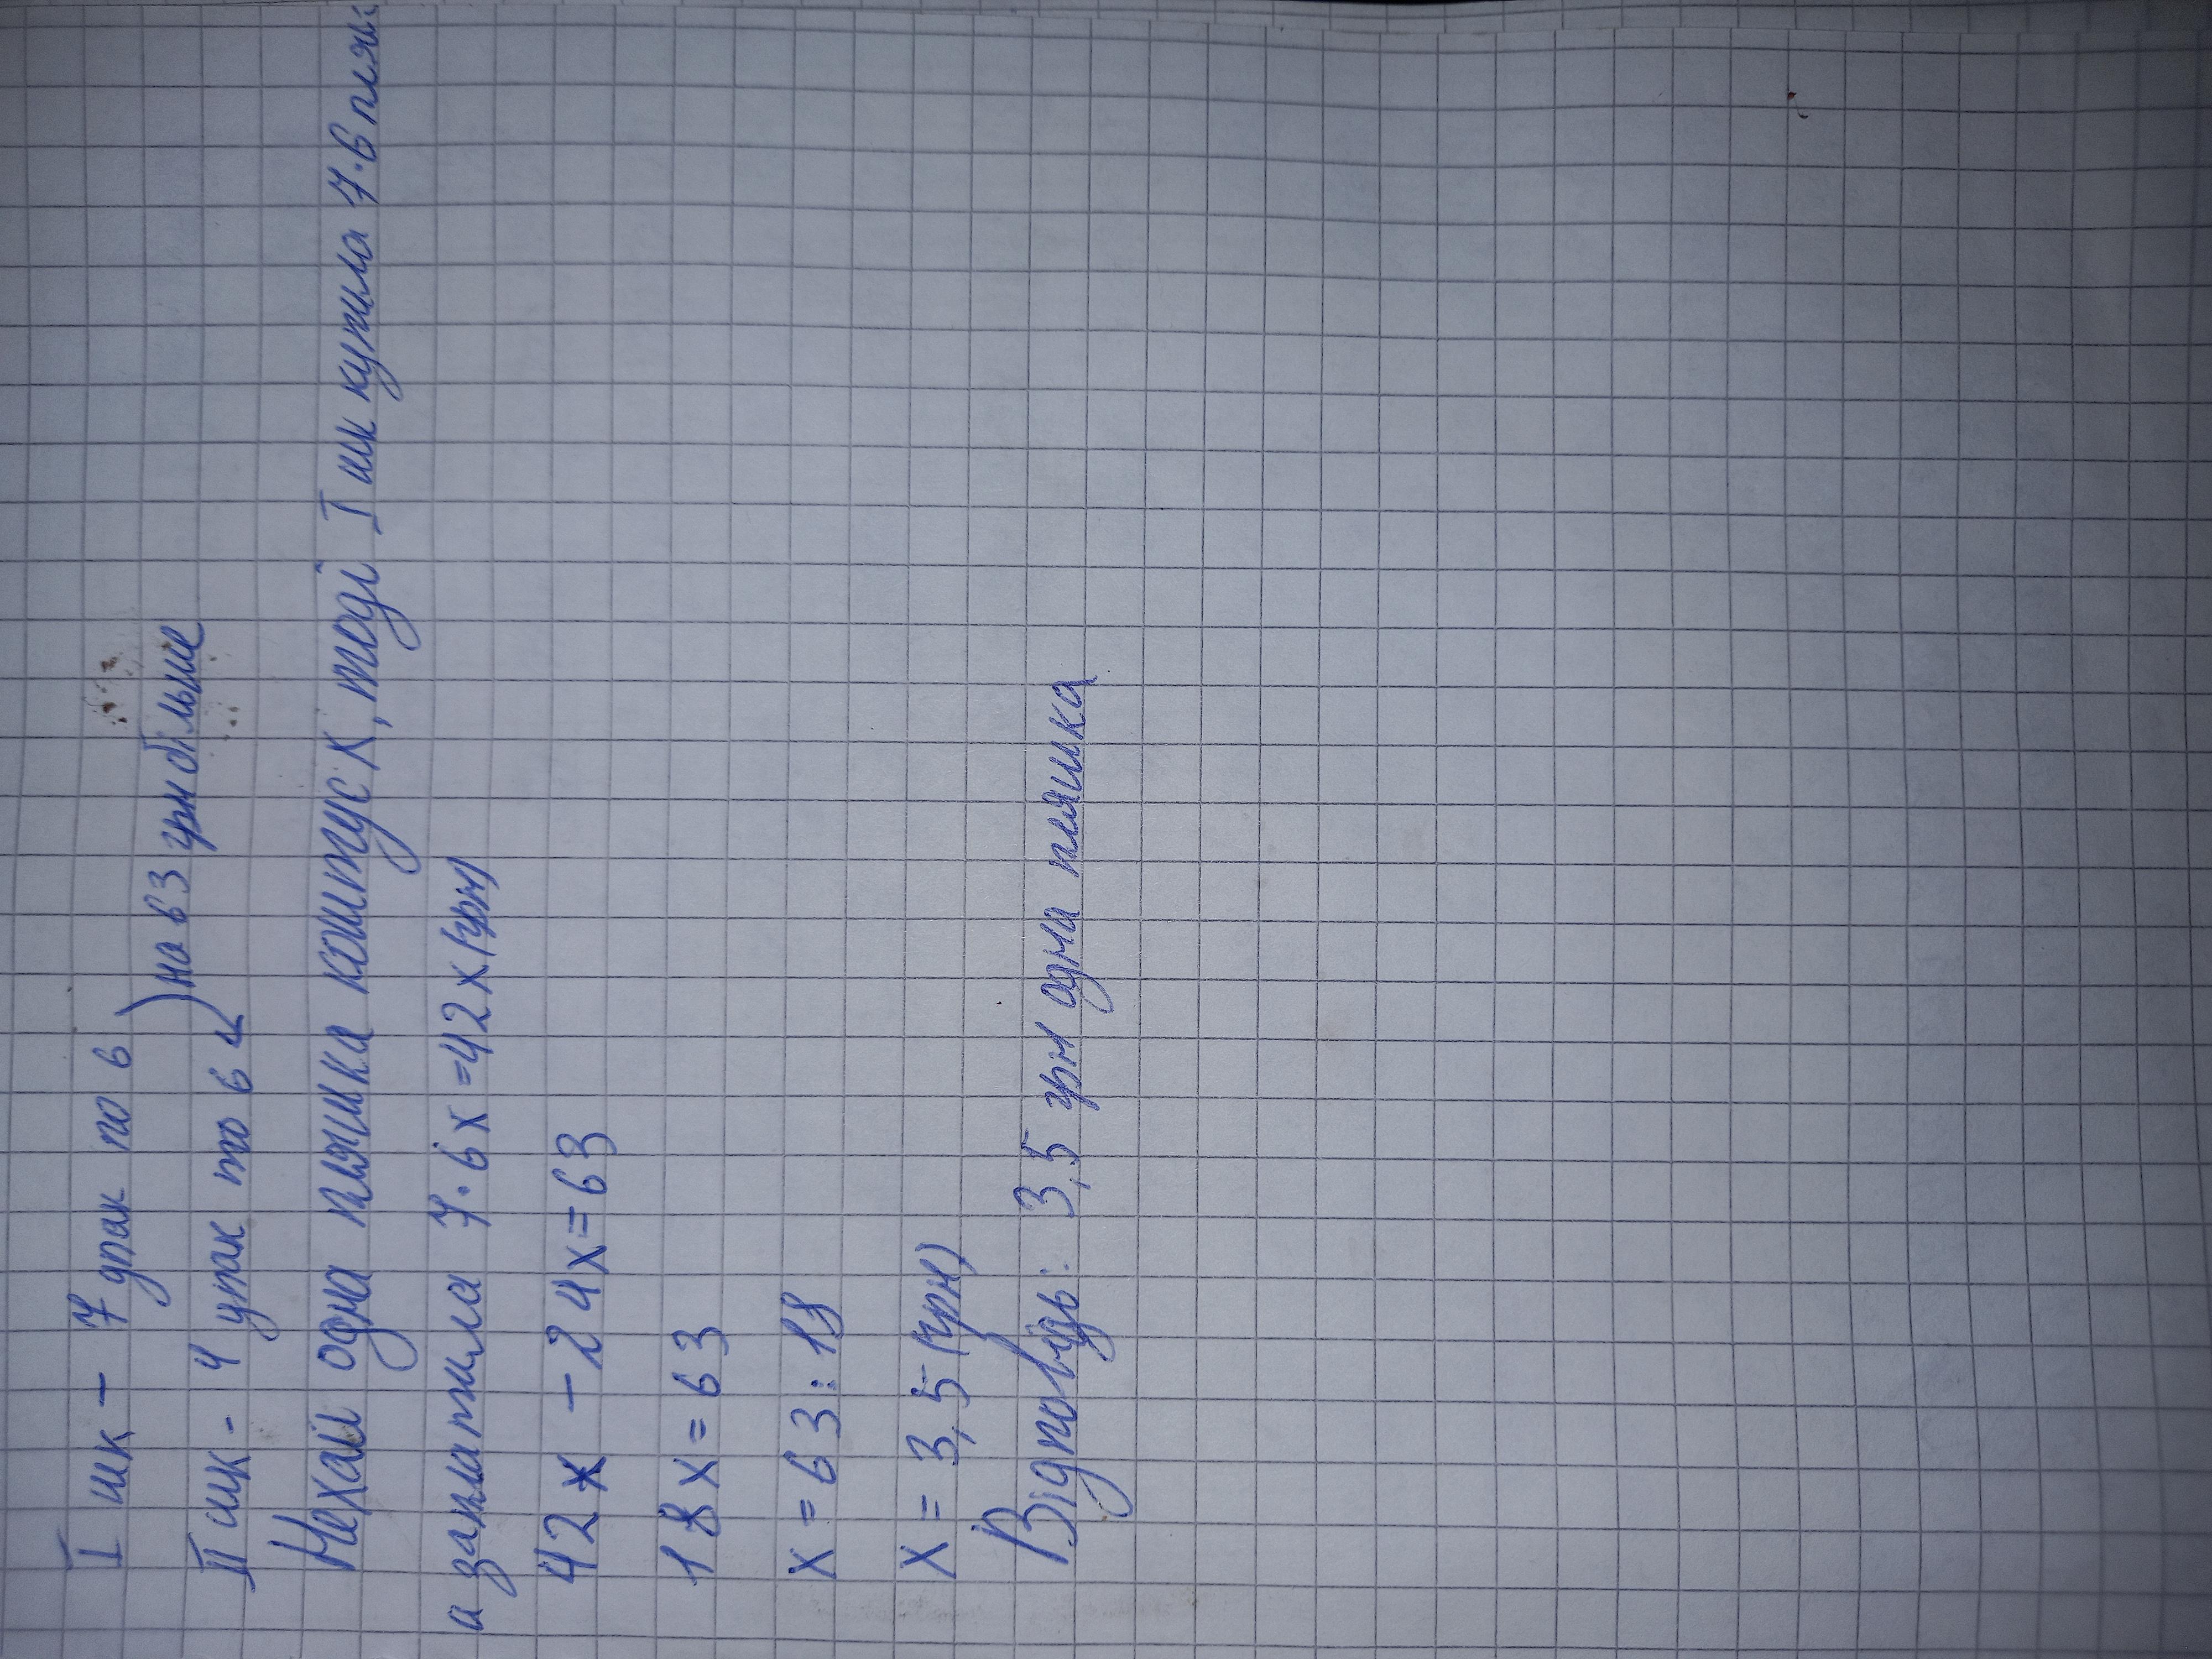 I шк - 7 упак по 6
II шк - 4 упак по 6 ) на 63 грн більше
Нехай одна пляшка коштує х, тоді I шк купила 7·6 пляш
а заплатила 7·6х=42х(грн)
42х - 24х=63
18х=63
х=63:18
х=3,5(грн)
Відповідь: 3,5 грн одна пляшка